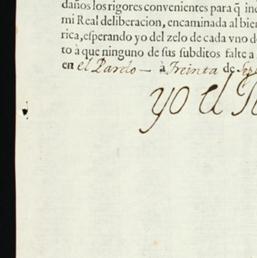 daños los rigores convenientes para q̃ in
mi Real deliberacion, encaminada al bien
rica, esperando yo del zelo de cada vno d
to à que ninguno de sus subditos falte a
en el Pardo — à Treinta de
yo el